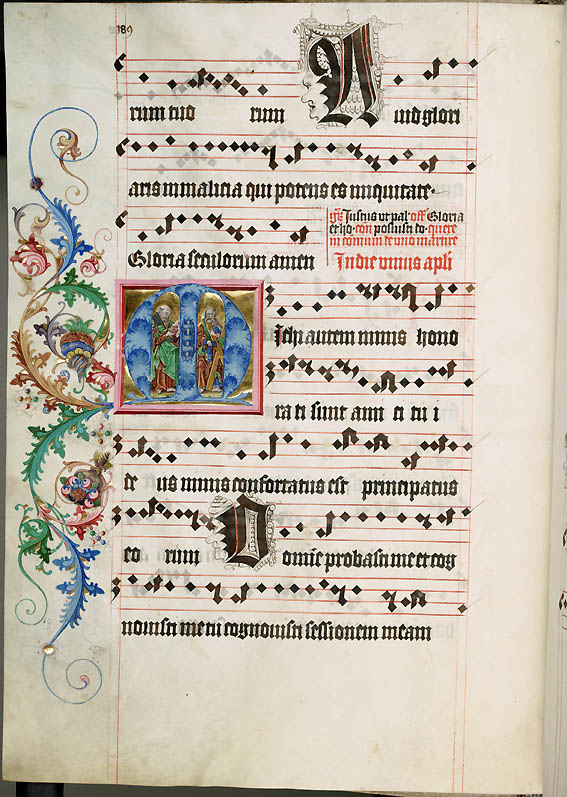 rum tuo rum Quid glori
aris inmalicia qui potens es iniquitate
Justus ut pal' off Gloria
et ho· com̄ posuisti do· quere
in comuni de vno martire
Gloria seculorum amen In die vnius apl̄i
Michi autem nimis hono
ra ti sunt ami ci tu i
de us nimis confortatus est principatus
eo rum Domīe probasti me et cog
nouisti me tu cognouisti sessionem meam